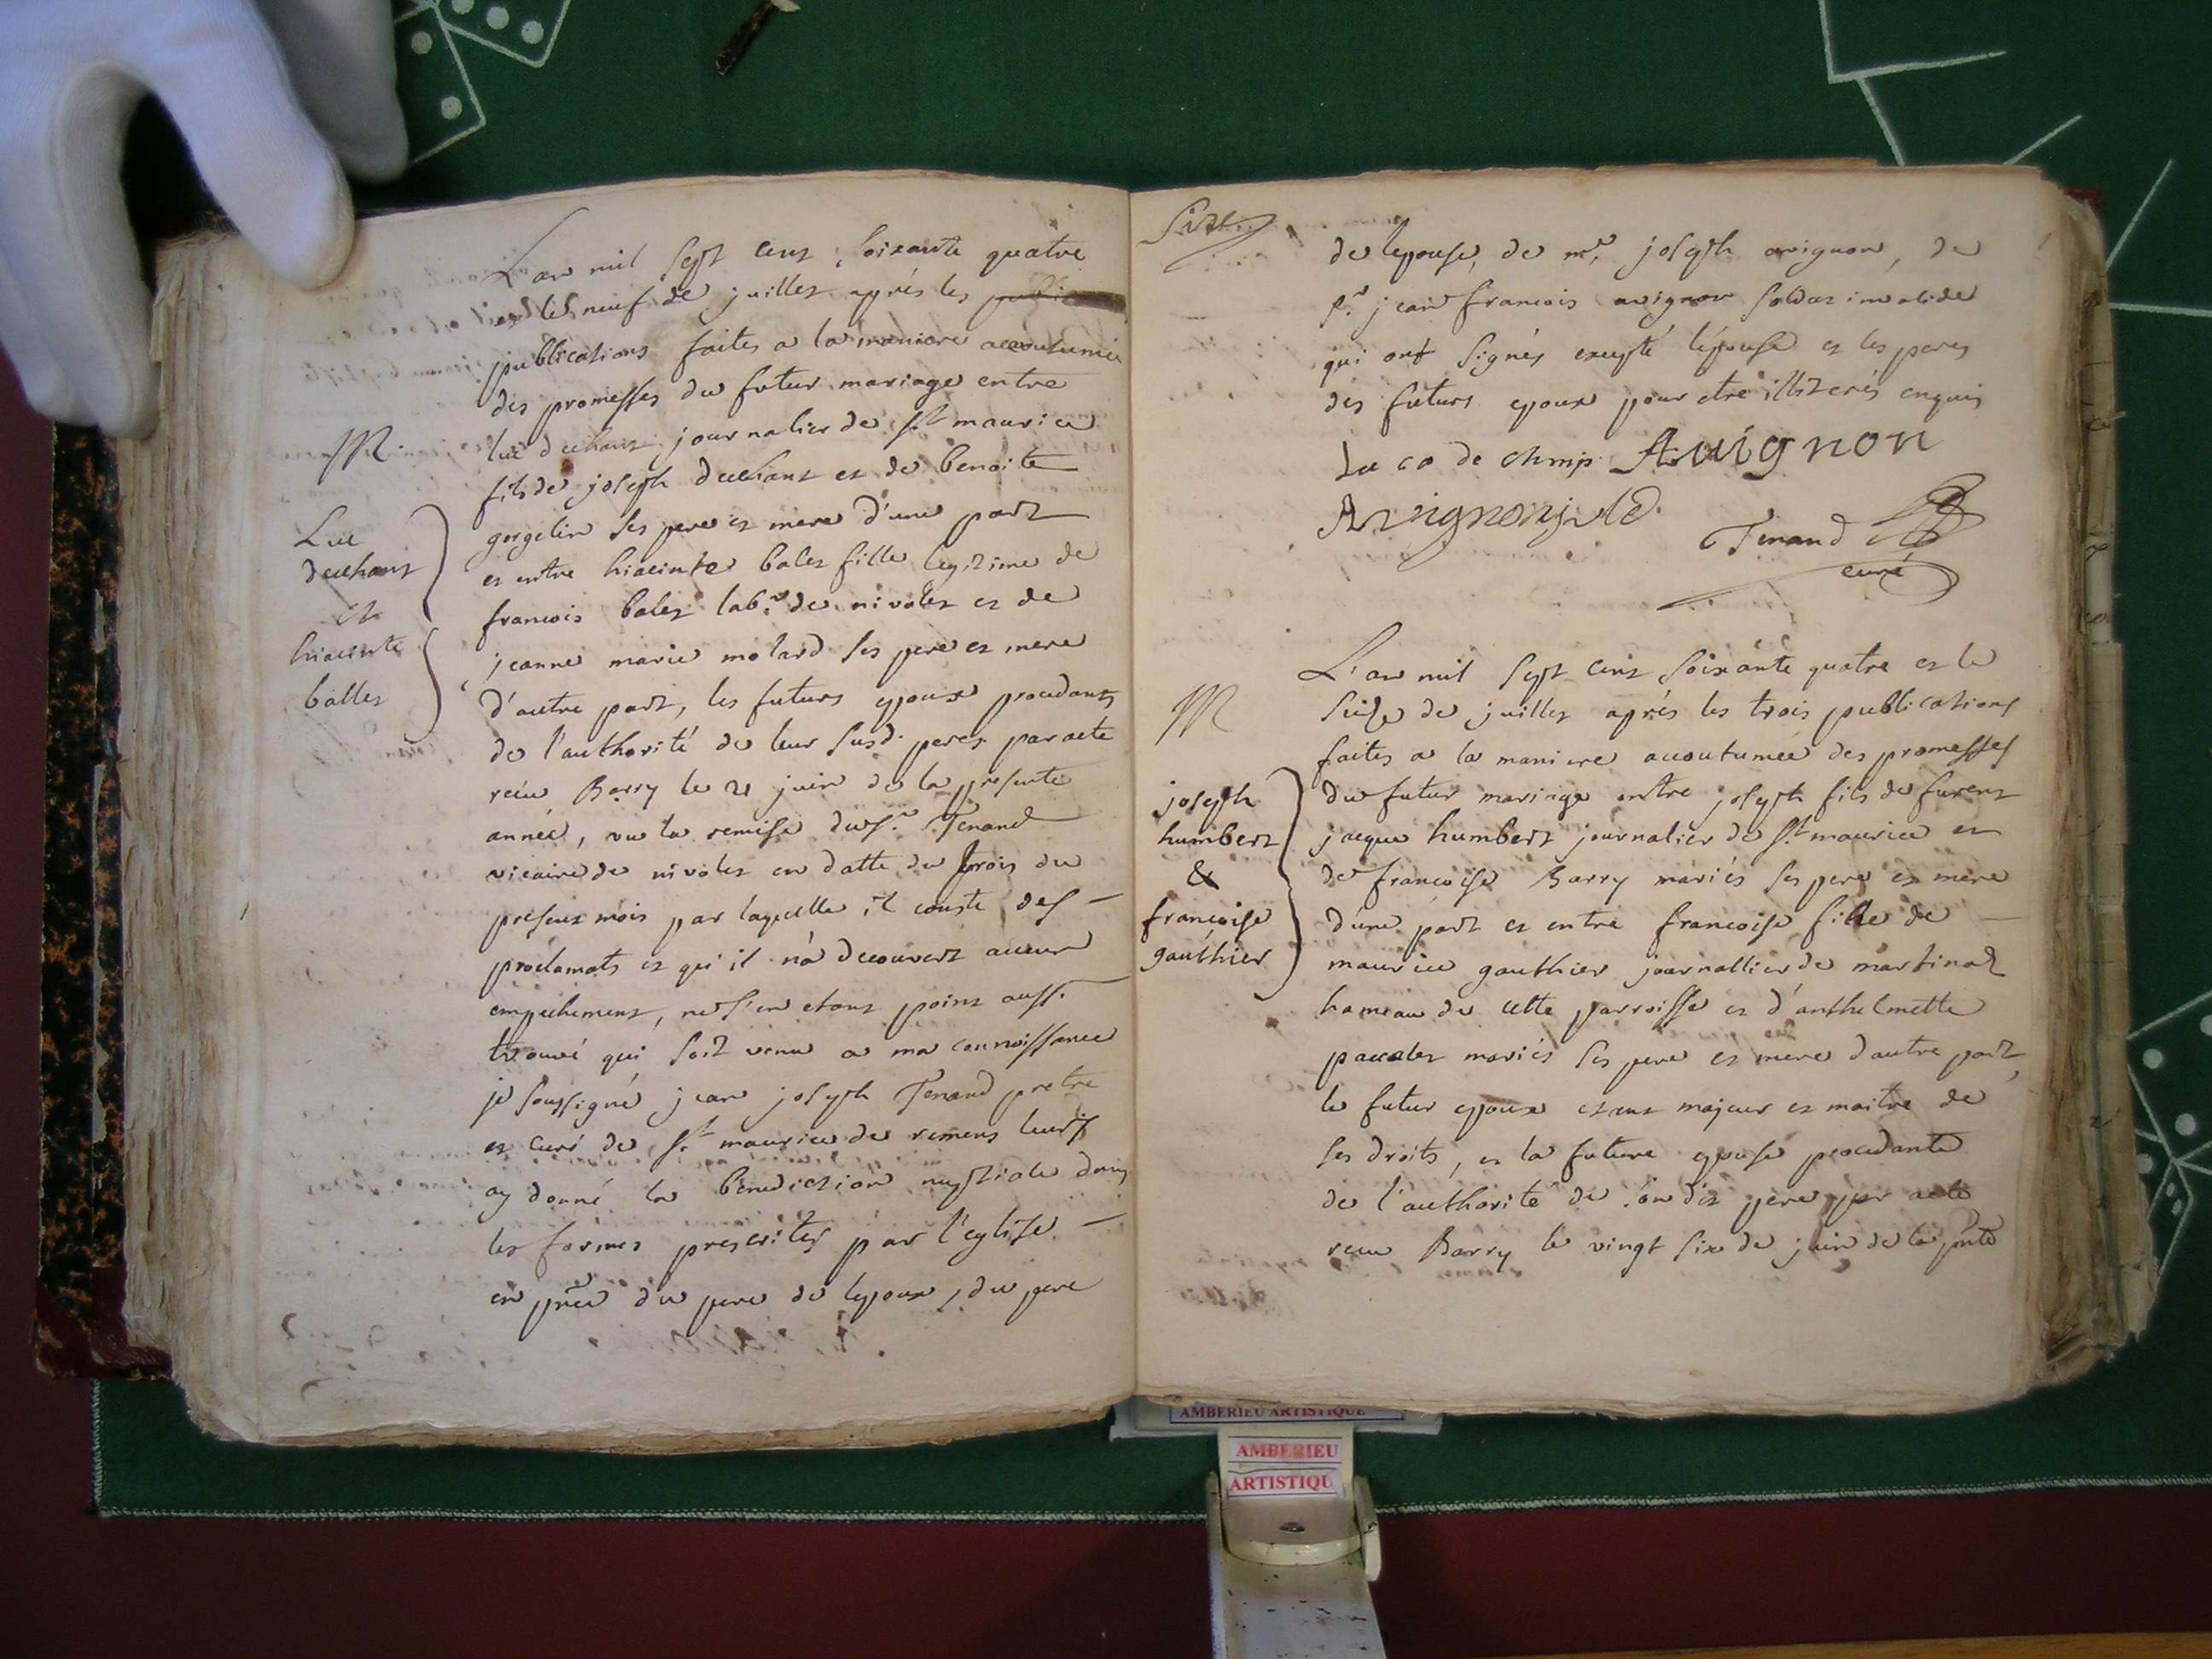 L'an mil sept cent soixante quatre
et le neuf de juillet après les
publications faites a la maniere accoutumée
des promesses du futur mariage entre
luc dechant journalier de st maurice
fils de joseph dechant et de benoite
gorgelin ses pere et mere d'une part
et entre hiacinte balet fille legitime de
francois balet labr de nivolet et de
jeanne marie molard ses pere et mere
d'autre part, les futurs epoux procedants
de l'authorité de leur susd. peres par acte
reçu Barry le 21 juin de la presente
année, vu la remise du sr Tenand
vicaire de nivolet en datte du trois du
present mois par laquelle il conste des
proclamats et qu'il n'a decouvert aucun
empechement, ne s'en etant point aussi
trouvé qui soit venu a ma connoissance
je soussigné jean joseph Tenand pretre
et curé de st maurice de remens leurs
ay donné la benediction nuptiale dans
les formes prescrites par l'eglise
en pnce du pere de lepoux, du pere
M
Luc
dechant
et
hiacinte
ballet
de lepouse, de mr joseph avignon, de
sr jean francois avignon soldat invalide
qui ont signés excepté l'épouse et les peres
des futurs epoux pour etre illiterés enquis
Lu co de chmp Avvignon
Avignon
Tenand
curé
M
joseph
humbert
&
françoise
gauthier
L'an mil sept cent soixante quatre et le
seize de juillet aprés les trois publications
faites a la maniere accoutumée des promesses
du futur mariage entre joseph fils de furent
jacque humbert journalier de st maurice et
de francoise Barry mariés ses pere et mere
d'une part et entre francoise fille de
maurice gauthier journallier de martinaz
hameau de cette parroisse et d'anthelmette
paccalet mariés ses pere et mere d'autre part
le futur epoux etant majeur et maitre de
ses droits, et la future epouse procedante
de l'authorité de son dit pere par acte
recu Barry le vingt six de juin de la pnte
AMBERIEU ARTISTIQUE
AMBERIEU
ARTISTIQU